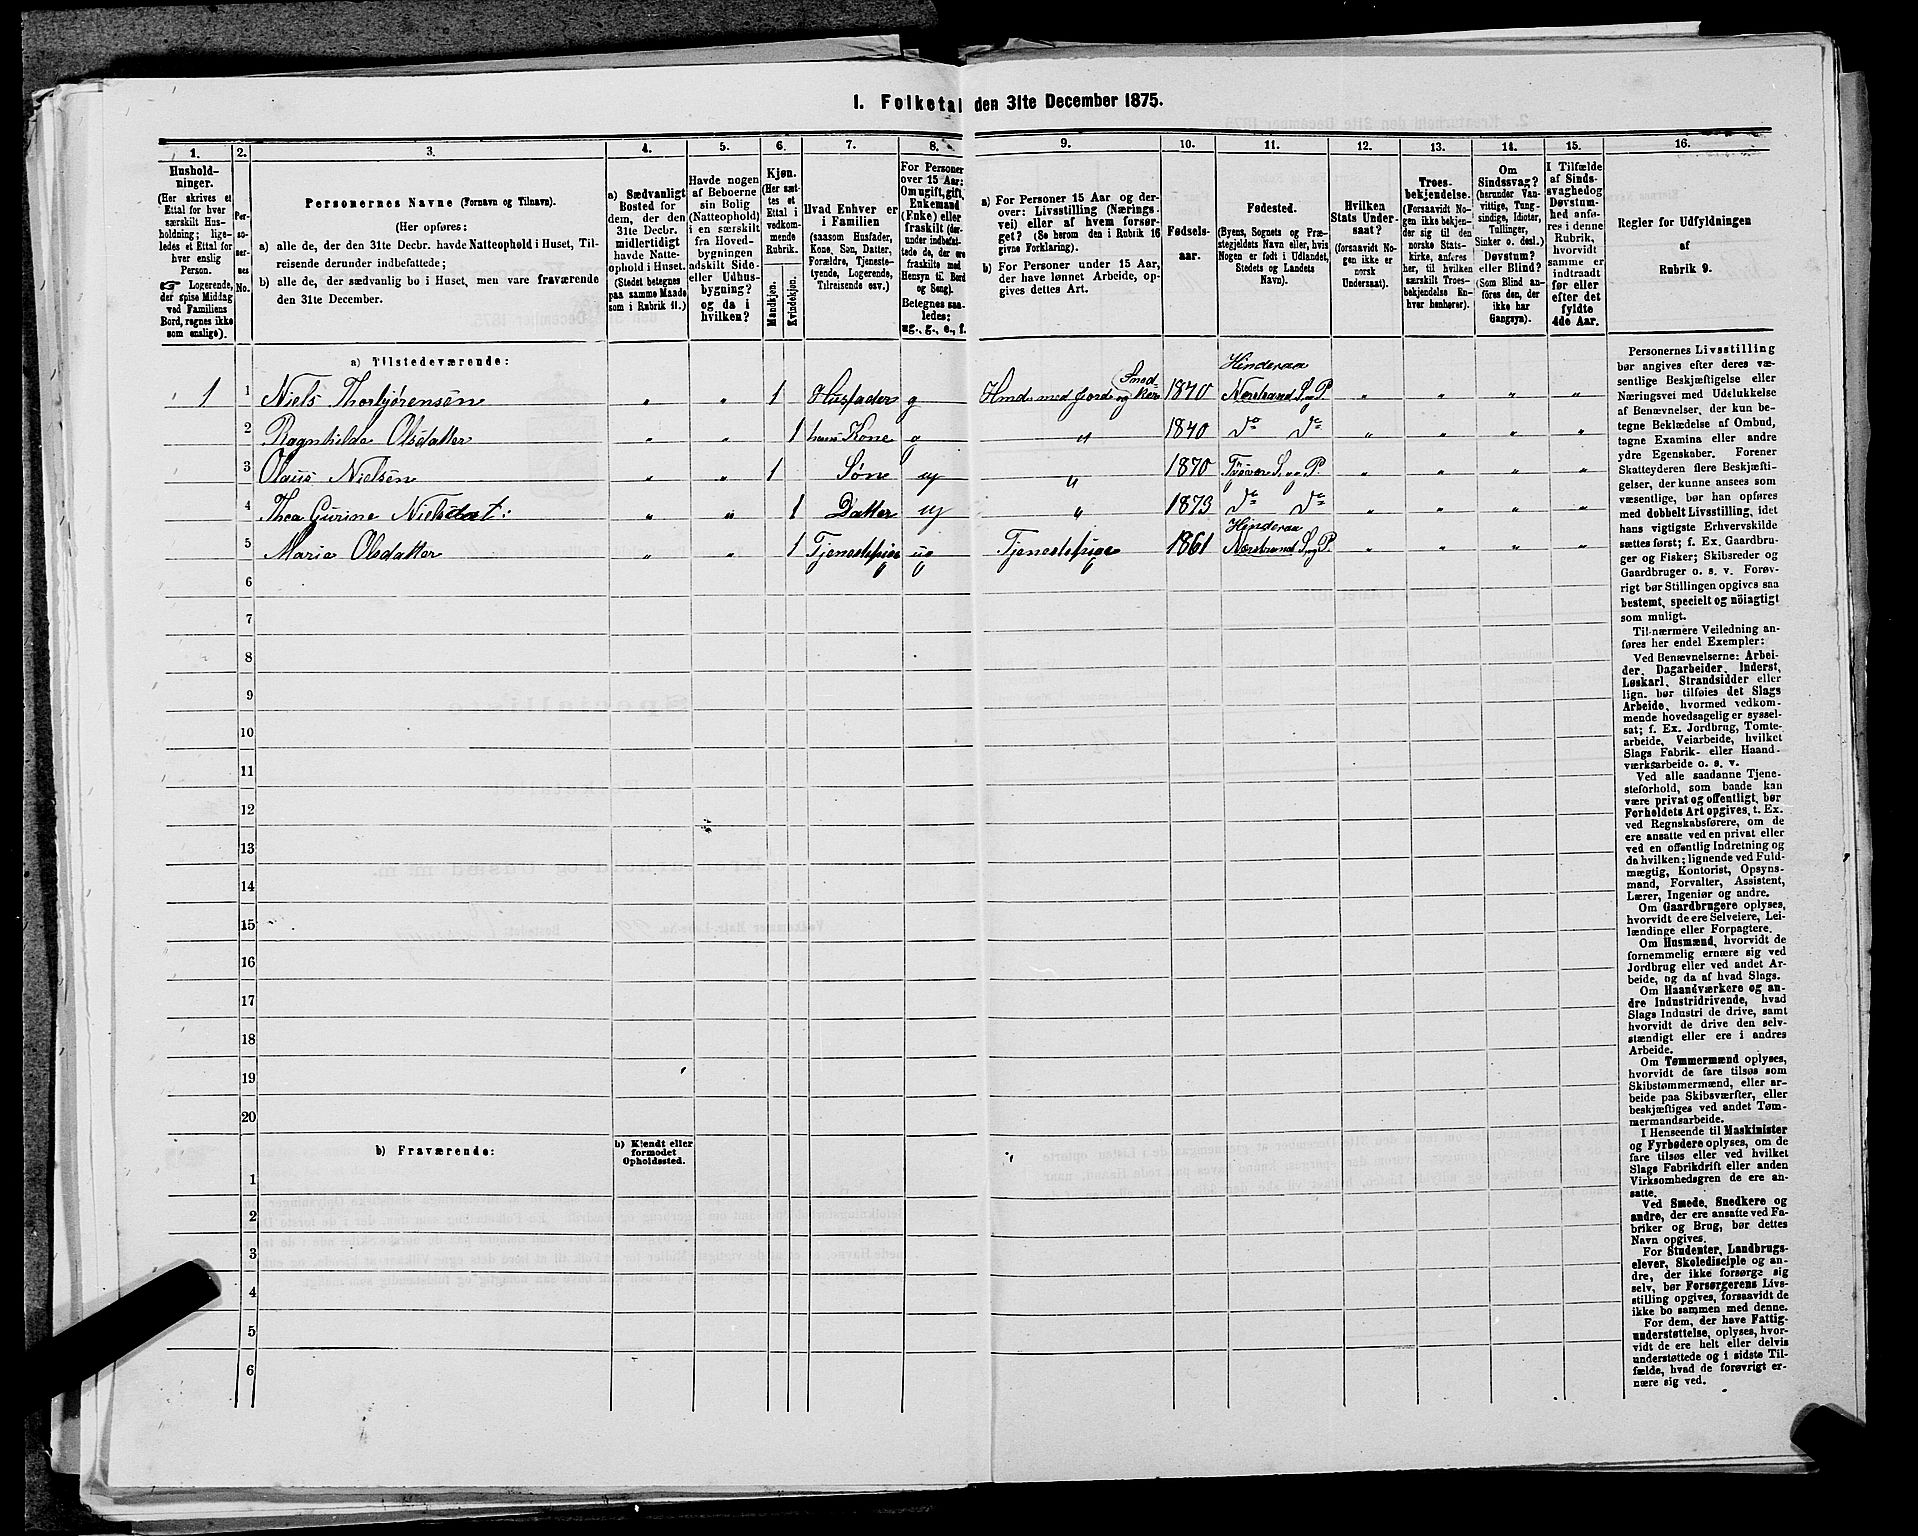 1. Folketal den 31te December 1875.
1.
Hushold-
ninger.
(Her skrives et
Ettal for hver
særskilt Hus-
holdning; lige-
ledes et Ettal for
hver enslig
Person.
☞ Logerende,
der spise Middag
ved Familiens
Bord, regnes ikke
som enslige).
2.
Per-
so-
ner-
nes
No.
3.
Personernes Navne (Fornavn og Tilnavn).
(Her opføres:
a) alle de, der den 31te Decbr. havde Natteophold i Huset, Til-
reisende derunder indbefattede;
b) alle de, der sædvanlig bo i Huset, men vare fraværende
den 31te December.
4.
a) Sædvanligt
Bosted for
dem, der den
31te Decbr.
midlertidigt
havde Natte-
ophold i Huset.
(Stedet betegnes
paa samme Maade
som i Rubrik 11.)
5.
Havde nogen
af Beboerne
sin Bolig
(Natteophold)
i en særskilt
fra Hoved-
bygningen
adskilt Side-
eller Udhus-
bygning?
og da i
hvilken?
6.
Kjøn.
(Her sæt-
tes et
Ettal i
vedkom-
mende
Rubrik.
Mandkjøn.
Kvindekjøn.
7.
Hvad Enhver er
i Familien
(saasom Husfader,
Kone, Søn, Datter,
Forældre, Tjeneste-
tyende, Logerende,
Tilreisende osv.)
8.
For Personer
over 15 Aar:
Om ugift, gift,
Enkemand
(Enke) eller
fraskilt (der-
under indbefat-
tede de, der ere
fraskilte med
Hensyn til Bord
og Seng).
Betegnes saa-
ledes:
ug., g., e., f.
9.
a) For Personer 15 Aar og der-
over: Livsstilling (Nærings-
vei) eller af hvem forsør-
get? (Se herom den i Rubrik 16
givne Forklaring).
b) For Personer under 15 Aar,
der have lønnet Arbeide, op-
gives dettes Art.
10.
Fødsels-
aar.
11.
Fødested.
(Byens, Sognets og Præ-
stegjeldets Navn eller, hvis
Nogen er født i Udlandet,
Stedets og Landets
Navn).
12.
Hvilken
Stats Under-
saat?
(forsaavidt No-
gen ikke er
norsk
Undersaat).
13.
Troes-
bekjendelse.
(Forsaavidt No-
gen ikke bekjen-
der sig til den
norske Stats-
kirke, anføres
her, til hvilken
særskilt Troes-
bekjendelse En-
hver henhører).
14.
Om
Sindssvag?
(herunder Van-
vittige, Tung-
sindige, Idioter,
Tullinger,
Sinker o. desl.)
Døvstum?
eller Blind?
(Som Blind an-
føres den, der
ikke har
Gangsyn).
15.
I Tilfælde
af Sinds-
svaghed og
Døvstum-
hed anfø-
res i denne
Rubrik,
hvorvidt
samme er
indtraadt
før eller
efter det
fyldte
4de Aar.
16.
Regler for Udfyldningen
af
Rubrik 9.
a) Tilstedeværende:
1 1 Niels Thorbjørensen " " 1 Husfader g Husm. med Jord og Smed- 1840 Hinderaa
Nerstrand S. og P. " " " "
2 Ragnhilde Olsdatter " " 1 hans Kone g " 1840 Do Do " " " "
3 Olaus Nielsen " " 1 Søne ug " 1870 Tysvær S. og P. " " " "
4 Thea Gurine Nielsdat: " " 1 Datter ug " 1873 Do Do " " " "
5 Marie Olsdatter " " 1 Tjenestepige ug Tjenestepige 1861 Hinderaa
Nerstrand S. og P. " " " "
6
7
8
9
10
11
12
13
14
15
16
17
18
19
20
b) Fraværende:
b) Kjendt eller
formodet
Opholdssted.
1
2
3
4
5
6
Personernes Livsstilling
bør angives efter deres væ-
sentlige Beskjæftigelse eller
Næringsvei med Udelukkelse
af Benævnelser, der kun be-
tegne Beklædelse af Ombud,
tagne Examina eller andre
ydre Egenskaber. Forener
Skatteyderen flere Beskjæfti-
gelser, der kunne ansees som
væsentlige, bør han opføres
med dobbelt Livsstilling, idet
hans vigtigste Erhvervskilde
sættes først; f. Ex. Gaardbru-
ger og Fisker; Skibsreder og
Gaardbruger o. s. v. Forøv-
rigt bør Stillingen opgives saa
bestemt, specielt og nöiagtigt
som muligt.
Til nærmere Veiledning an-
føres her endel Exempler:
Ved Benævnelserne: Arbei-
der, Dagarbeider, Inderst,
Løskarl, Strandsidder eller
lign. bør tilføies det Slags
Arbeide, hvormed vedkom-
mende hovedsagelig er syssel-
sat; f. Ex. Jordbrug, Tomte-
arbeide, Veiarbeide, hvilket
Slags Fabrik- eller Haand-
værksarbeide o. s. v.
Ved alle saadanne Tjene-
steforhold, som baade kan
være privat og offentligt, bør
Forholdets Art opgives, t. Ex.
ved Regnskabsførere, om de
ere ansatte ved en privat eller
ved en offentlig Indretning og
da hvilken; lignende ved Fuld-
mægtig, Kontorist, Opsyns-
mand, Forvalter, Assistent,
Lærer, Ingeniør og andre.
Om Gaardbrugere oplyses,
hvorvidt de ere Selveiere, Lei-
lændinge eller Forpagtere.
Om Husmænd, hvorvidt de
fornemmelig ernære sig ved
Jordbrug eller ved andet Ar-
beide, og da af hvad Slags.
Om Haandværkere og an-
dre Industridrivende, hvad
Slags Industri de drive, samt
hvorvidt de drive den selv-
stændigt eller ere i andres
Arbeide.
Om Tømmermænd oplyses,
hvorvidt de fare tilsøs som
Skibstømmermænd, eller ar-
beide paa Skibsværfter, eller
beskjæftiges ved andet Tøm-
mermandsarbeide.
I Henseende til Maskinister
og Fyrbødere oplyses, om de
fare tilsøs eller ved hvilket
Slags Fabrikdrift eller anden
Virksomhedsgren de ere an-
satte.
Ved Smede, Snedkere og
andre, der ere ansatte ved Fa-
briker og Brug, bør dettes
Navn opgives.
For Studenter, Landbrugs-
elever, Skoledisciple og an-
dre, der ikke forsørge sig
selv, bør Forsørgerens Livs-
stilling opgives, forsaavidt de
ikke bo sammen med denne.
For dem, der have Fattig-
understøttelse, oplyses, hvor-
vidt de ere helt eller delvis
understøttede og i sidste Til-
fælde, hvad de forøvrigt er-
nære sig ved.